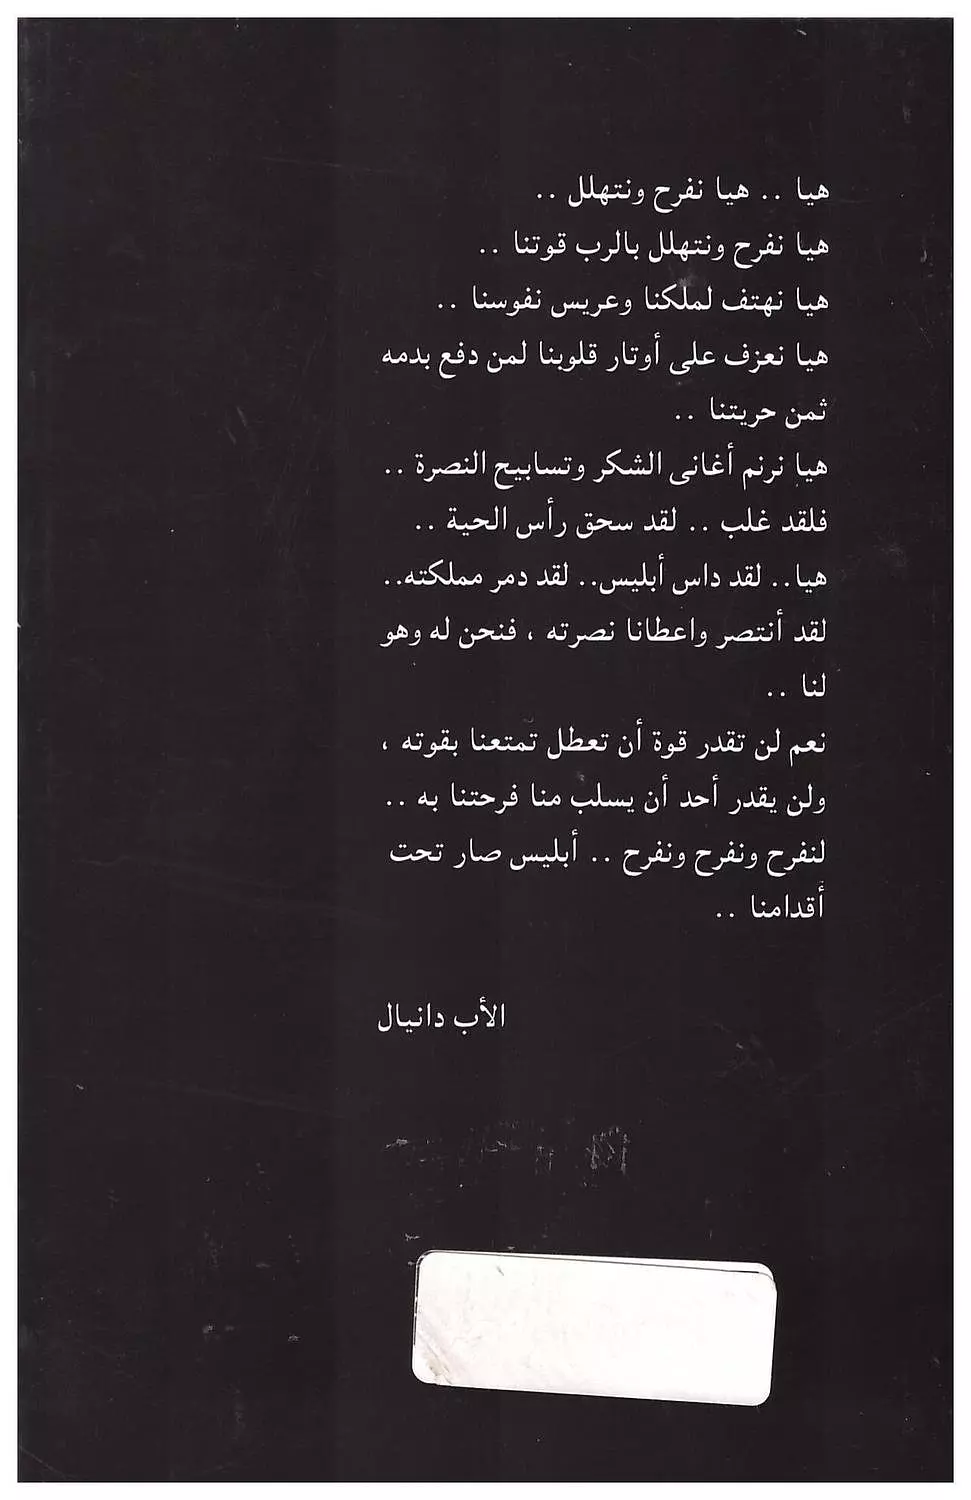 هيا .. هيا نفرح ونتهلل ..
هيا نفرح ونتهلل بالرب قوتنا ..
هيا نهتف لملكنا وعريس نفوسنا ..
هيا نعزف على أوتار قلوبنا لمن دفع بدمه
ثمن حريتنا ..
هيا نرنم أغانى الشكر وتسابيح النصرة ..
فلقد غلب .. لقد سحق رأس الحية ..
هيا.. لقد داس أبليس.. لقد دمر مملكته..
لقد أنتصر واعطانا نصرته ، فنحن له وهو
لنا ..
نعم لن تقدر قوة أن تعطل تمتعنا بقوته ،
ولن يقدر أحد أن يسلب منا فرحتنا به ..
لنفرح ونفرح ونفرح .. أبليس صار تحت
أقدامنا ..
الأب دانيال